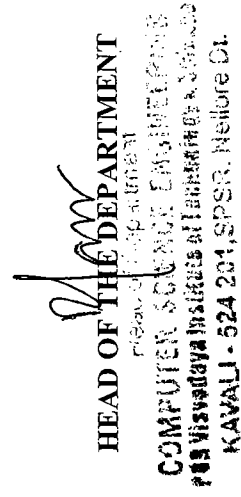 HEAD OF THE DEPARTMENT
Head of Department
COMPUTER SCIENCE ENGINEERING
PBR Visvodaya Institute of Technology & Science
KAVALI - 524 201, SPSR. Nellore Dt.